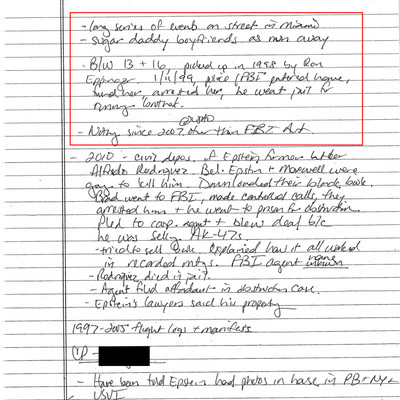 - long series of events on street in Miami
- sugar daddy boyfriends as run away
- B/W 13 + 16, picked up in 1998 by Ron
Eppinger. 1/11/99, police / FBI entered house,
found her, arrested him, he went jail for
running
- Nothing since 2007 other than FBI Act.
- 2010 - civil depos. of Epstein, former butler
Alfredo Rodriguez. Bel. Epstein + Maxwell were
going to kill him. Downloaded their black book.
Brad went to FBI, made controlled calls, they
arrested him + he went to prison for obstruction.
Pled to coop. agent + blew deal b/c
he was selling AK-47s.
- tried to sell book. Explained how it all worked
in recorded mtgs. FBI agent
- Rodriguez died in jail.
- Agent filed affidavit in obstruction case.
- Epstein's lawyers said his property
1997-2005 flight logs + manifests
CP -
- Have been told Epstein had photos in house in PB + NY +
USVI